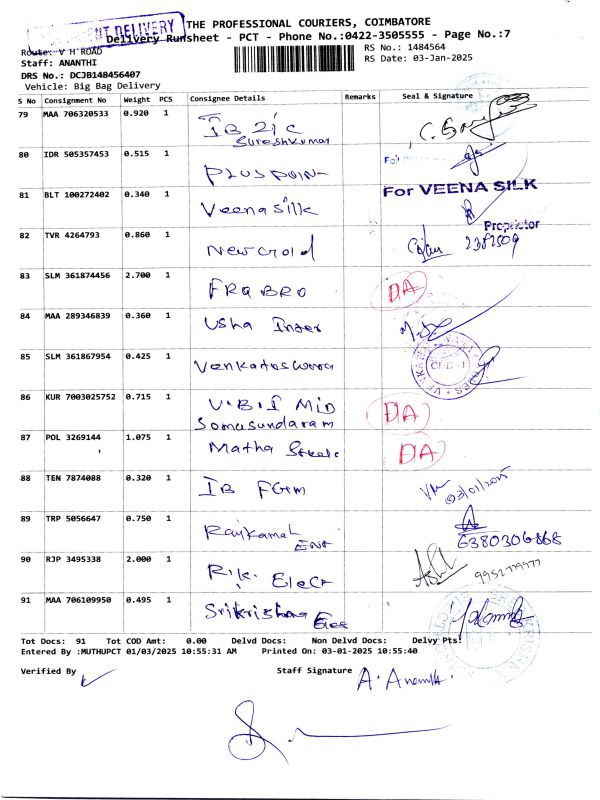 URGENT DELIVERY
THE PROFESSIONAL COURIERS, COIMBATORE
Delivery Runsheet - PCT - Phone No.:0422-3505555 - Page No.:7
Route: V H ROAD
RS No.: 1484564
Staff: ANANTHI
RS Date: 03-Jan-2025
DRS No.: DCJB148456407
Vehicle: Big Bag Delivery
S No Consignment No Weight PCS Consignee Details Remarks Seal & Signature
79 MAA 706320533 0.920 1 IB 2ic
Sureshkumar
80 IDR 505357453 0.515 1 PLUS POINT
81 BLT 100272402 0.340 1 Veena silk For VEENA SILK
Proprietor
82 TVR 4264793 0.860 1 New
83 SLM 361874456 2.700 1 FRQ BRO DA
84 MAA 289346839 0.360 1 Usha Inter
85 SLM 361867954 0.425 1 Venkateswara
86 KUR 7003025752 0.715 1 V.B.I MID DA
Somasundaram
87 POL 3269144 1.075 1 Matha Steels DA
88 TEN 7874088 0.320 1 IB FGm 03/01/2025
89 TRP 5056647 0.750 1 Rajkamal
Ent 6380306868
90 RJP 3495338 2.000 1 R.K. Elect
91 MAA 706109950 0.495 1 Srikrishna
Tot Docs: 91 Tot COD Amt: 0.00 Delvd Docs: Non Delvd Docs: Delvy Pts:
Entered By :MUTHUPCT 01/03/2025 10:55:31 AM Printed On: 03-01-2025 10:55:40
Verified By Staff Signature A. Ananthi